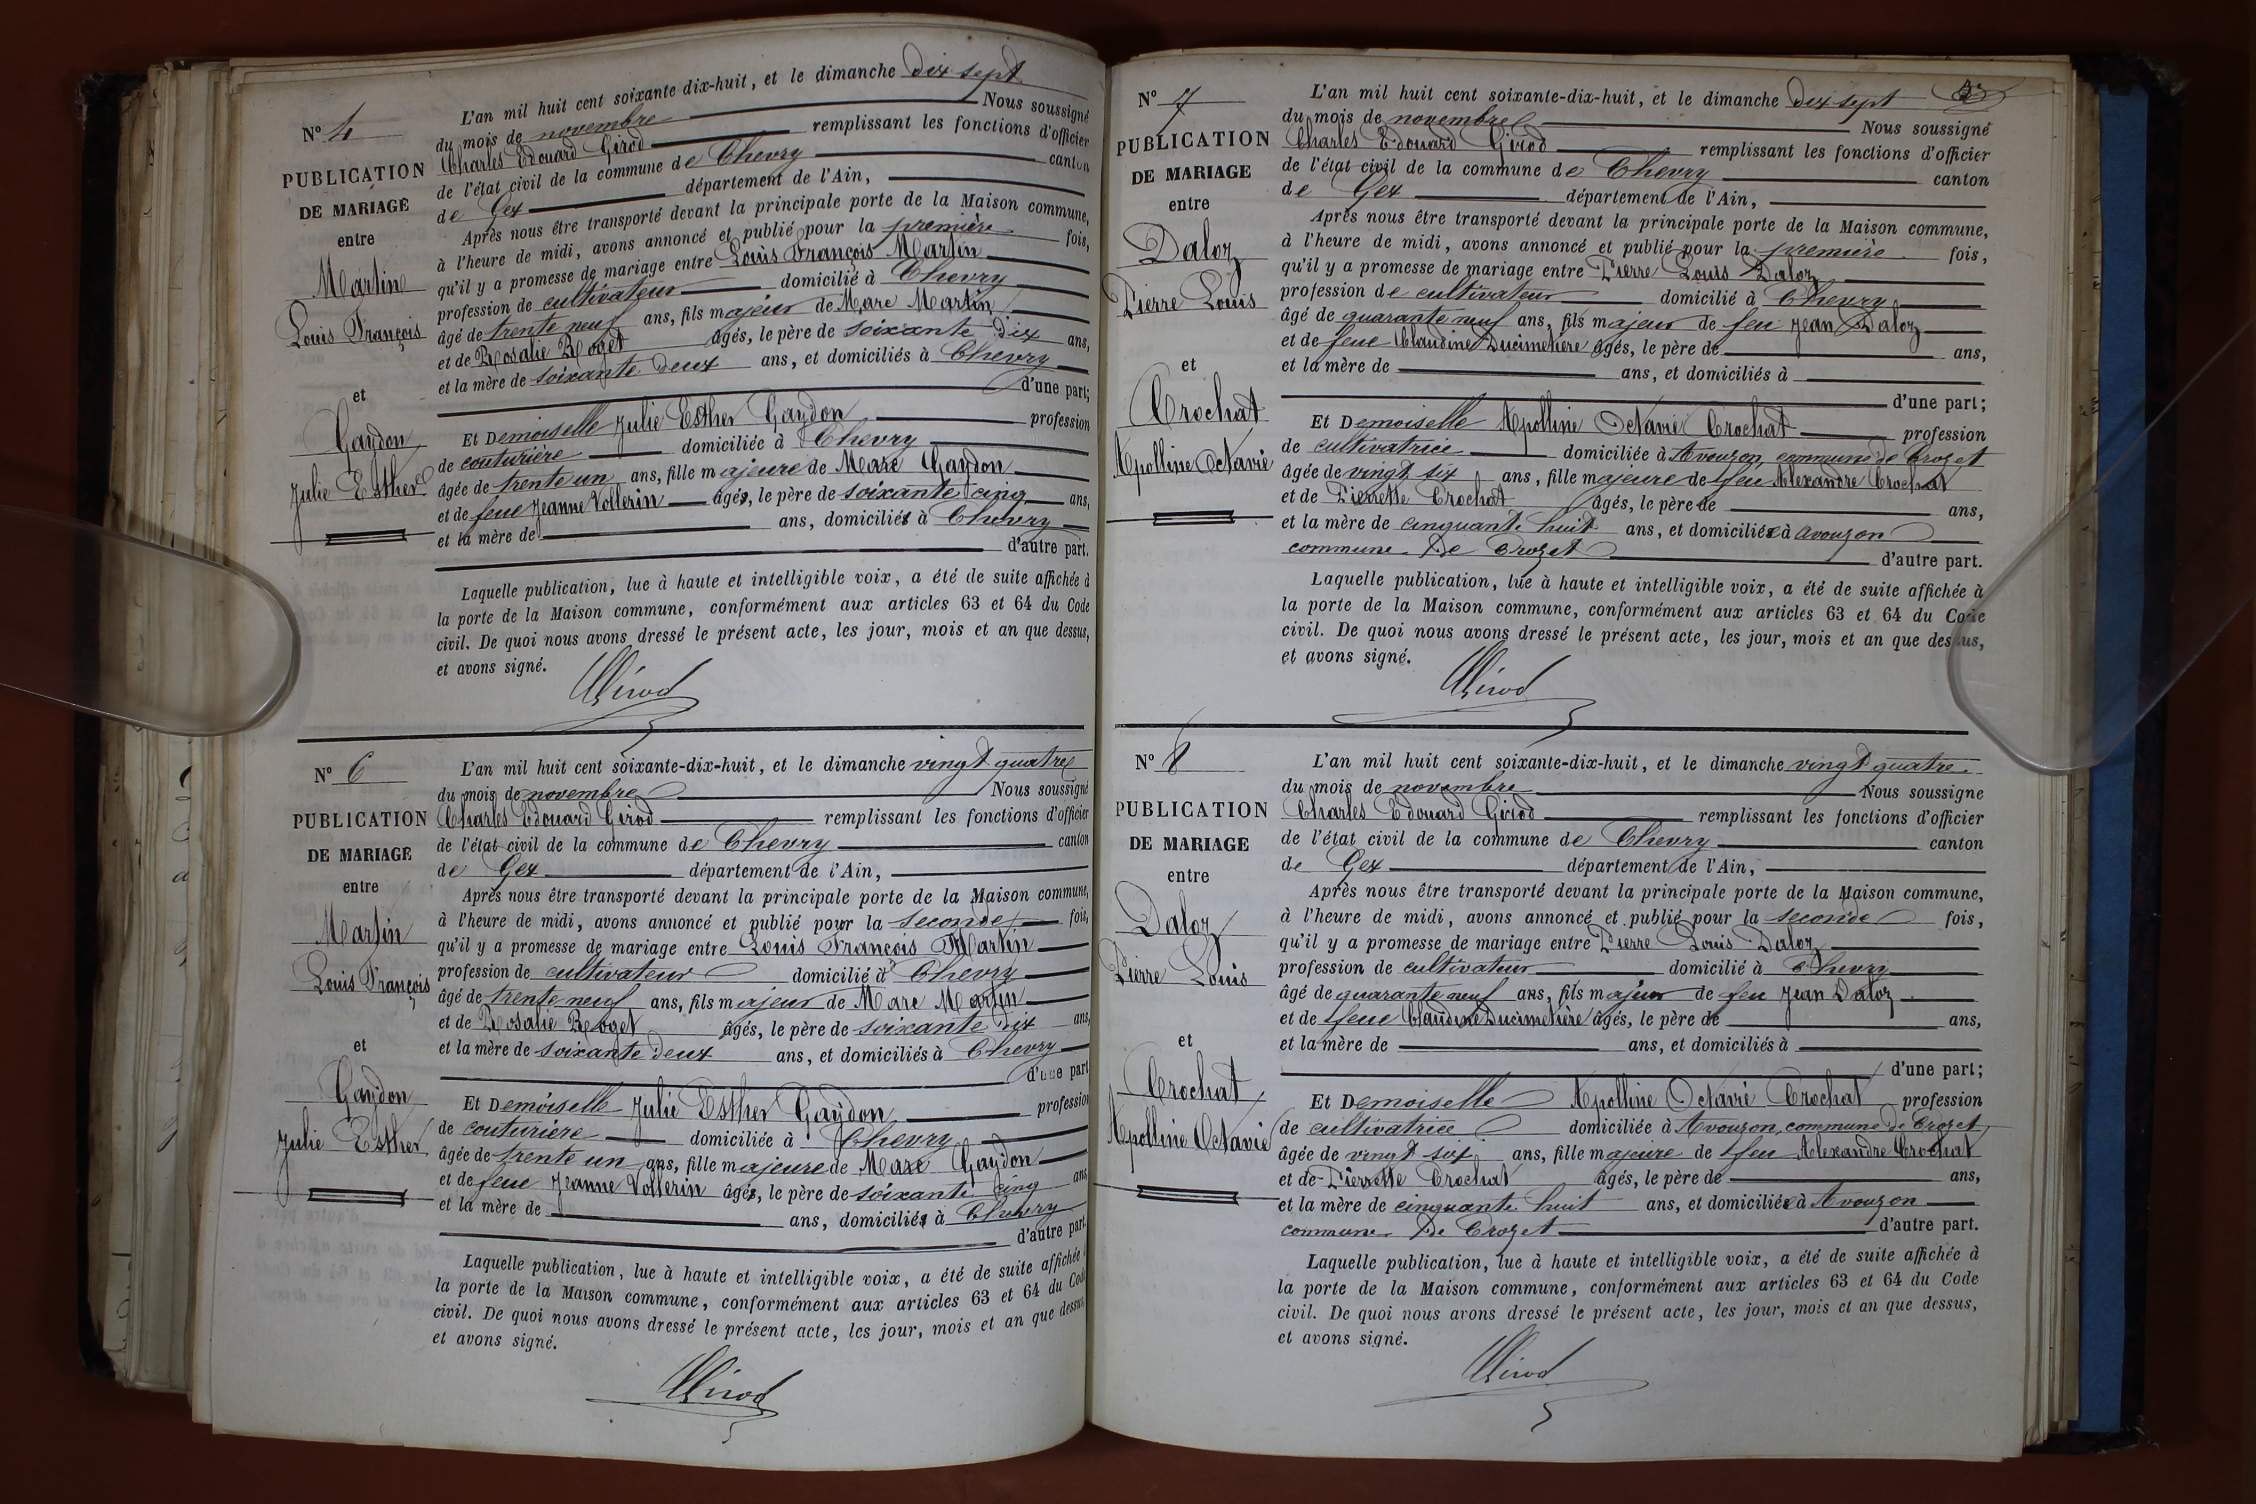 N° 4
PUBLICATION
DE MARIAGE
entre
Martin
Louis François
et
Gaydon
Julie Esther
L'an mil huit cent soixante dix-huit, et le dimanche dix sept
du mois de novembre Nous soussigné
Charles Edouard Girod remplissant les fonctions d'officier
de l'état civil de la commune de Chevry canton
de Gex département de l'Ain,
Après nous être transporté devant la principale porte de la Maison commune,
à l'heure de midi, avons annoncé et publié pour la première fois,
qu'il y a promesse de mariage entre Louis François Martin
profession de cultivateur domicilié à Chevry
âgé de trente neuf ans, fils majeur de Marc Martin
et de Rosalie Roget âgés, le père de soixante dix ans,
et la mère de soixante deux ans, et domiciliés à Chevry
d'une part;
Et Demoiselle Julie Esther Gaydon profession
de couturière domiciliée à Chevry
âgée de trente un ans, fille majeure de Marc Gaydon
et de feue Jeanne Vollerin âgés, le père de soixante cinq ans,
et la mère de ans, domiciliés à Chevry
d'autre part.
Laquelle publication, lue à haute et intelligible voix, a été de suite affichée à
la porte de la Maison commune, conformément aux articles 63 et 64 du Code
civil. De quoi nous avons dressé le présent acte, les jour, mois et an que dessus,
et avons signé.
Girod
N° 6
PUBLICATION
DE MARIAGE
entre
Martin
Louis François
et
Gaydon
Julie Esther
L'an mil huit cent soixante-dix-huit, et le dimanche vingt quatre
du mois de novembre Nous soussigné
Charles Edouard Girod remplissant les fonctions d'officier
de l'état civil de la commune de Chevry canton
de Gex département de l'Ain,
Après nous être transporté devant la principale porte de la Maison commune,
à l'heure de midi, avons annoncé et publié pour la seconde fois,
qu'il y a promesse de mariage entre Louis François Martin
profession de cultivateur domicilié à Chevry
âgé de trente neuf ans, fils majeur de Marc Martin
et de Rosalie Roget âgés, le père de soixante dix ans,
et la mère de soixante deux ans, et domiciliés à Chevry
d'une part
Et Demoiselle Julie Esther Gaydon profession
de couturière domiciliée à Chevry
âgée de trente un ans, fille majeure de Marc Gaydon
et de feue Jeanne Vollerin âgés, le père de soixante cinq ans
et la mère de ans, domiciliés à Chevry
d'autre part.
Laquelle publication, lue à haute et intelligible voix, a été de suite affichée à
la porte de la Maison commune, conformément aux articles 63 et 64 du Code
civil. De quoi nous avons dressé le présent acte, les jour, mois et an que dessus,
et avons signé.
Girod
N° 7
PUBLICATION
DE MARIAGE
entre
Daloz
Pierre Louis
et
Crochat
Apolline Octavie
L'an mil huit cent soixante-dix-huit, et le dimanche dix sept
du mois de novembre Nous soussigné
Charles Edouard Girod remplissant les fonctions d'officier
de l'état civil de la commune de Chevry canton
de Gex département de l'Ain,
Après nous être transporté devant la principale porte de la Maison commune,
à l'heure de midi, avons annoncé et publié pour la première fois,
qu'il y a promesse de mariage entre Pierre Louis Daloz
profession de cultivateur domicilié à Chevry
âgé de quarante neuf ans, fils majeur de feu Jean Daloz
et de feue Claudine Ducimetière âgés, le père de ans,
et la mère de ans, et domiciliés à
d'une part;
Et Demoiselle Apolline Octavie Crochat profession
de cultivatrice domiciliée à Avouzon, commune de Crozet
âgée de vingt six ans, fille majeure de feu Alexandre Crochat
et de Pierrette Crochat âgés, le père de ans,
et la mère de cinquante huit ans, et domiciliée à avouzon
commune de Crozet d'autre part.
Laquelle publication, lue à haute et intelligible voix, a été de suite affichée à
la porte de la Maison commune, conformément aux articles 63 et 64 du Code
civil. De quoi nous avons dressé le présent acte, les jour, mois et an que dessus,
et avons signé.
Girod
N° 8
PUBLICATION
DE MARIAGE
entre
Daloz
Pierre Louis
et
Crochat
Apolline Octavie
L'an mil huit cent soixante-dix-huit, et le dimanche vingt quatre
du mois de novembre Nous soussigné
Charles Edouard Girod remplissant les fonctions d'officier
de l'état civil de la commune de Chevry canton
de Gex département de l'Ain,
Après nous être transporté devant la principale porte de la Maison commune,
à l'heure de midi, avons annoncé et publié pour la seconde fois,
qu'il y a promesse de mariage entre Pierre Louis Daloz
profession de cultivateur domicilié à Chevry
âgé de quarante neuf ans, fils majeur de feu Jean Daloz
et de feue Claudine Ducimetière âgés, le père de ans,
et la mère de ans, et domiciliés à
d'une part;
Et Demoiselle Apolline Octavie Crochat profession
de cultivatrice domiciliée à Avouzon, commune de Crozet
âgée de vingt six ans, fille majeure de feu Alexandre Crochat
et de Pierrette Crochat âgés, le père de ans,
et la mère de cinquante huit ans, et domiciliée à Avouzon
commune de Crozet d'autre part.
Laquelle publication, lue à haute et intelligible voix, a été de suite affichée à
la porte de la Maison commune, conformément aux articles 63 et 64 du Code
civil. De quoi nous avons dressé le présent acte, les jour, mois et an que dessus,
et avons signé.
Girod